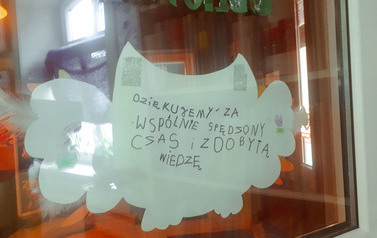 DZIĘKUJEMY ZA
WSPÓLNIE SPĘDSONY
CSAS i ZDOBYTĄ
WIEDZĘ